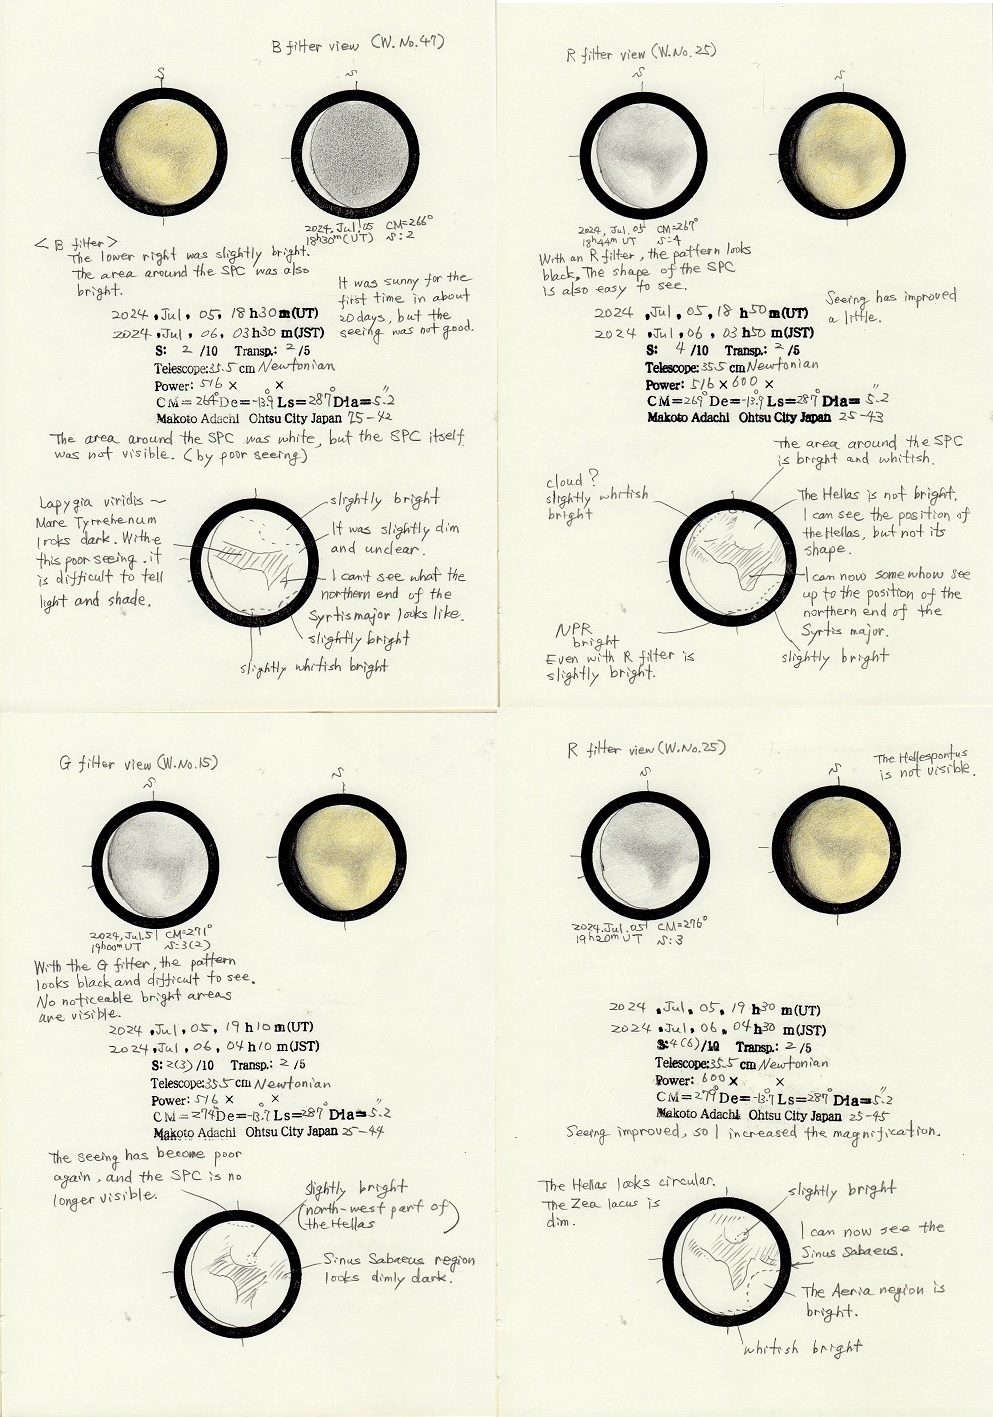 B filter view (W.No.47)
S
S
2024, Jul, 05 CM=266°
18h30m(UT) S:2
<B filter>
The lower right was slightly bright.
The area around the SPC was also
bright.
It was sunny for the
first time in about
20 days, but the
seeing was not good.
2024, Jul, 05, 18 h30 m(UT)
2024, Jul, 06, 03h30 m(JST)
S: 2 /10 Transp.: 2 /5
Telescope: 35.5 cm Newtonian
Power: 516 × ×
CM=264° De=-13.9° Ls=287° Dia=5.2"
Makoto Adachi Ohtsu City Japan 25-42
The area around the SPC was white, but the SPC itself
was not visible. (by poor seeing)
Iapygia viridis ~
Mare Tyrrehenum
looks dark. With
this poor seeing. it
is difficult to tell
light and shade.
slightly bright
It was slightly dim
and unclear.
I can't see what the
northern end of the
Syrtis major looks like.
slightly bright
slightly whitish bright
R filter view (W.No.25)
S
S
2024, Jul, 05 CM=267°
18h44m UT S=4
With an R filter, the pattern looks
black, The shape of the SPC
is also easy to see.
Seeing has improved
a little.
2024, Jul, 05, 18 h50 m(UT)
2024, Jul, 06, 03 h50 m(JST)
S: 4 /10 Transp.: 2 /5
Telescope: 35.5 cm Newtonian
Power: 516 × 600 ×
CM=269° De=-13.9° Ls=287° Dia=5.2"
Makoto Adachi Ohtsu City Japan 25-43
The area around the SPC
is bright and whitish.
cloud?
slightly whitish
bright
The Hellas is not bright.
I can see the position of
the Hellas, but not its
shape.
I can now somewhow see
up to the position of the
northern end of the
Syrtis major.
NPR
bright
Even with R filter is
slightly bright.
slightly bright
G filter view (W.No.15)
S
S
2024, Jul.5 CM=271°
19h00m UT S:3(2)
With the G filter, the pattern
looks black and difficult to see.
No noticeable bright areas
are visible.
2024, Jul, 05, 19 h10 m(UT)
2024, Jul, 06, 04 h10 m(JST)
S: 2(3) /10 Transp.: 2 /5
Telescope: 35.5 cm Newtonian
Power: 516 × ×
CM=274° De=-13.7° Ls=287° Dia=5.2"
Makoto Adachi Ohtsu City Japan 25-44
The seeing has become poor
again, and the SPC is no
longer visible.
slightly bright
(north-west part of)
the Hellas
Sinus Sabaeus region
looks dimly dark.
R filter view (W.No.25)
The Hellespontus
is not visible.
S
S
2024. Jul. 05 CM=276°
19h20m UT S:3
2024, Jul, 05, 19 h30 m(UT)
2024, Jul, 06, 04h30 m(JST)
S: 4(6)/10 Transp.: 2 /5
Telescope: 35.5 cm Newtonian
Power: 600 × ×
CM=279° De=-13.7° Ls=287° Dia=5.2"
Makoto Adachi Ohtsu City Japan 25-45
Seeing improved, so I increased the magnification.
The Hellas looks circular.
The Zea lacus is
dim.
slightly bright
I can now see the
Sinus Sabaeus.
The Aeria region is
bright.
whitish bright